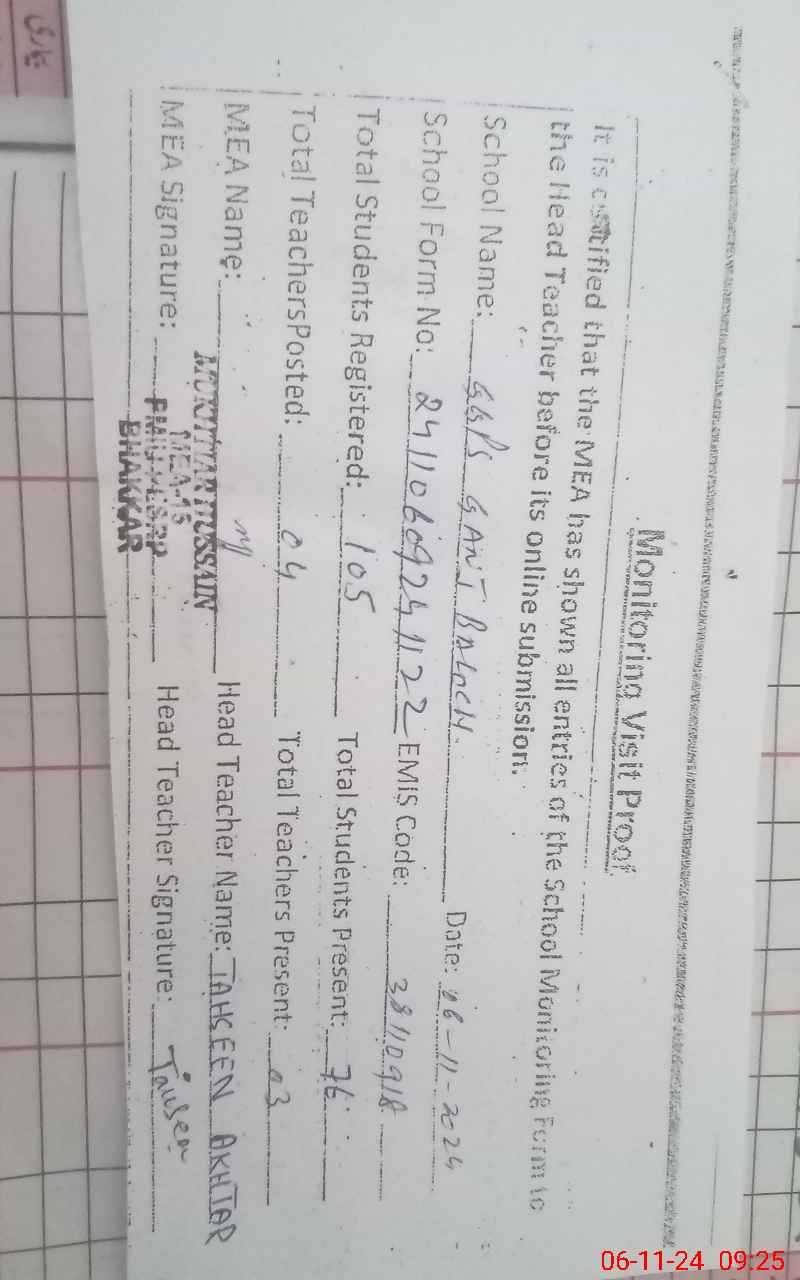 Monitoring Visit Proof
It is certified that the MEA has shown all entries of the School Monitoring Form to
the Head Teacher before its online submission.
School Name: GGPS GANJ BALOCH. Date: 06-11-2024
School Form No: 24110609241122 EMIS Code: 38110918
Total Students Registered: 105 Total Students Present: 76
Total Teachers Posted: 04 Total Teachers Present: 03
MEA Name: Head Teacher Name: TAHSEEN AKHTAR
MEA Signature: Head Teacher Signature: Tahseen
MEA-15
BHAKKAR
06-11-24 09:25